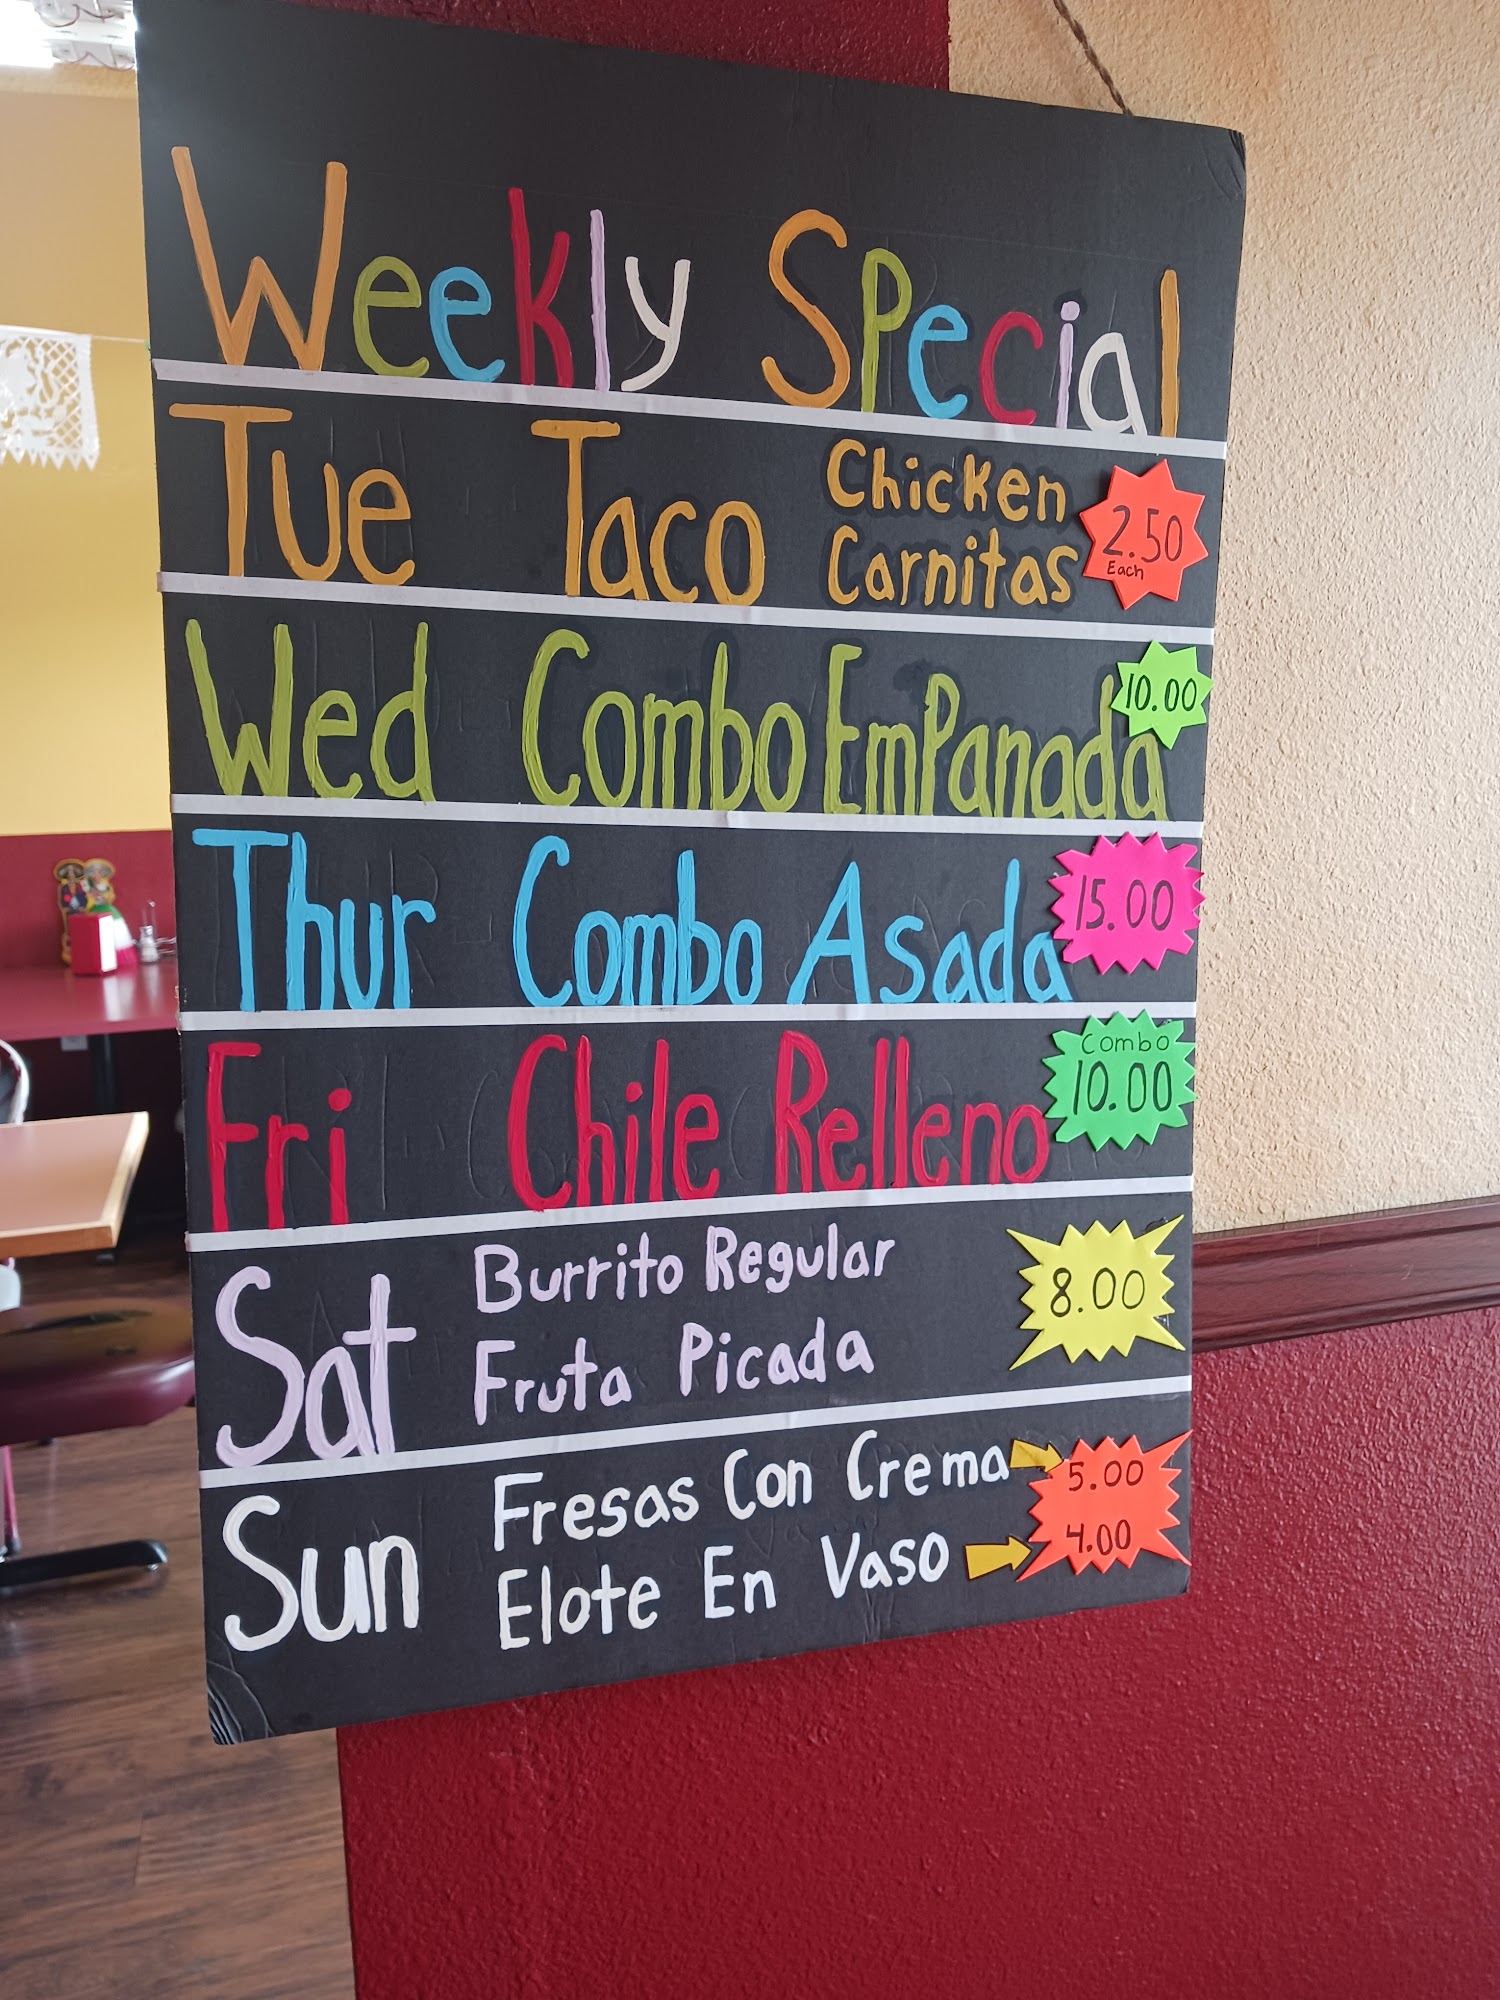 Weekly Special
Tue Taco Chicken Carnitas 2.50 Each
Wed Combo Empanada 10.00
Thur Combo Asada 15.00
Fri Chile Relleno Combo 10.00
Sat Burrito Regular
Fruta Picada 8.00
Sun Fresas Con Crema 5.00
Elote En Vaso 4.00